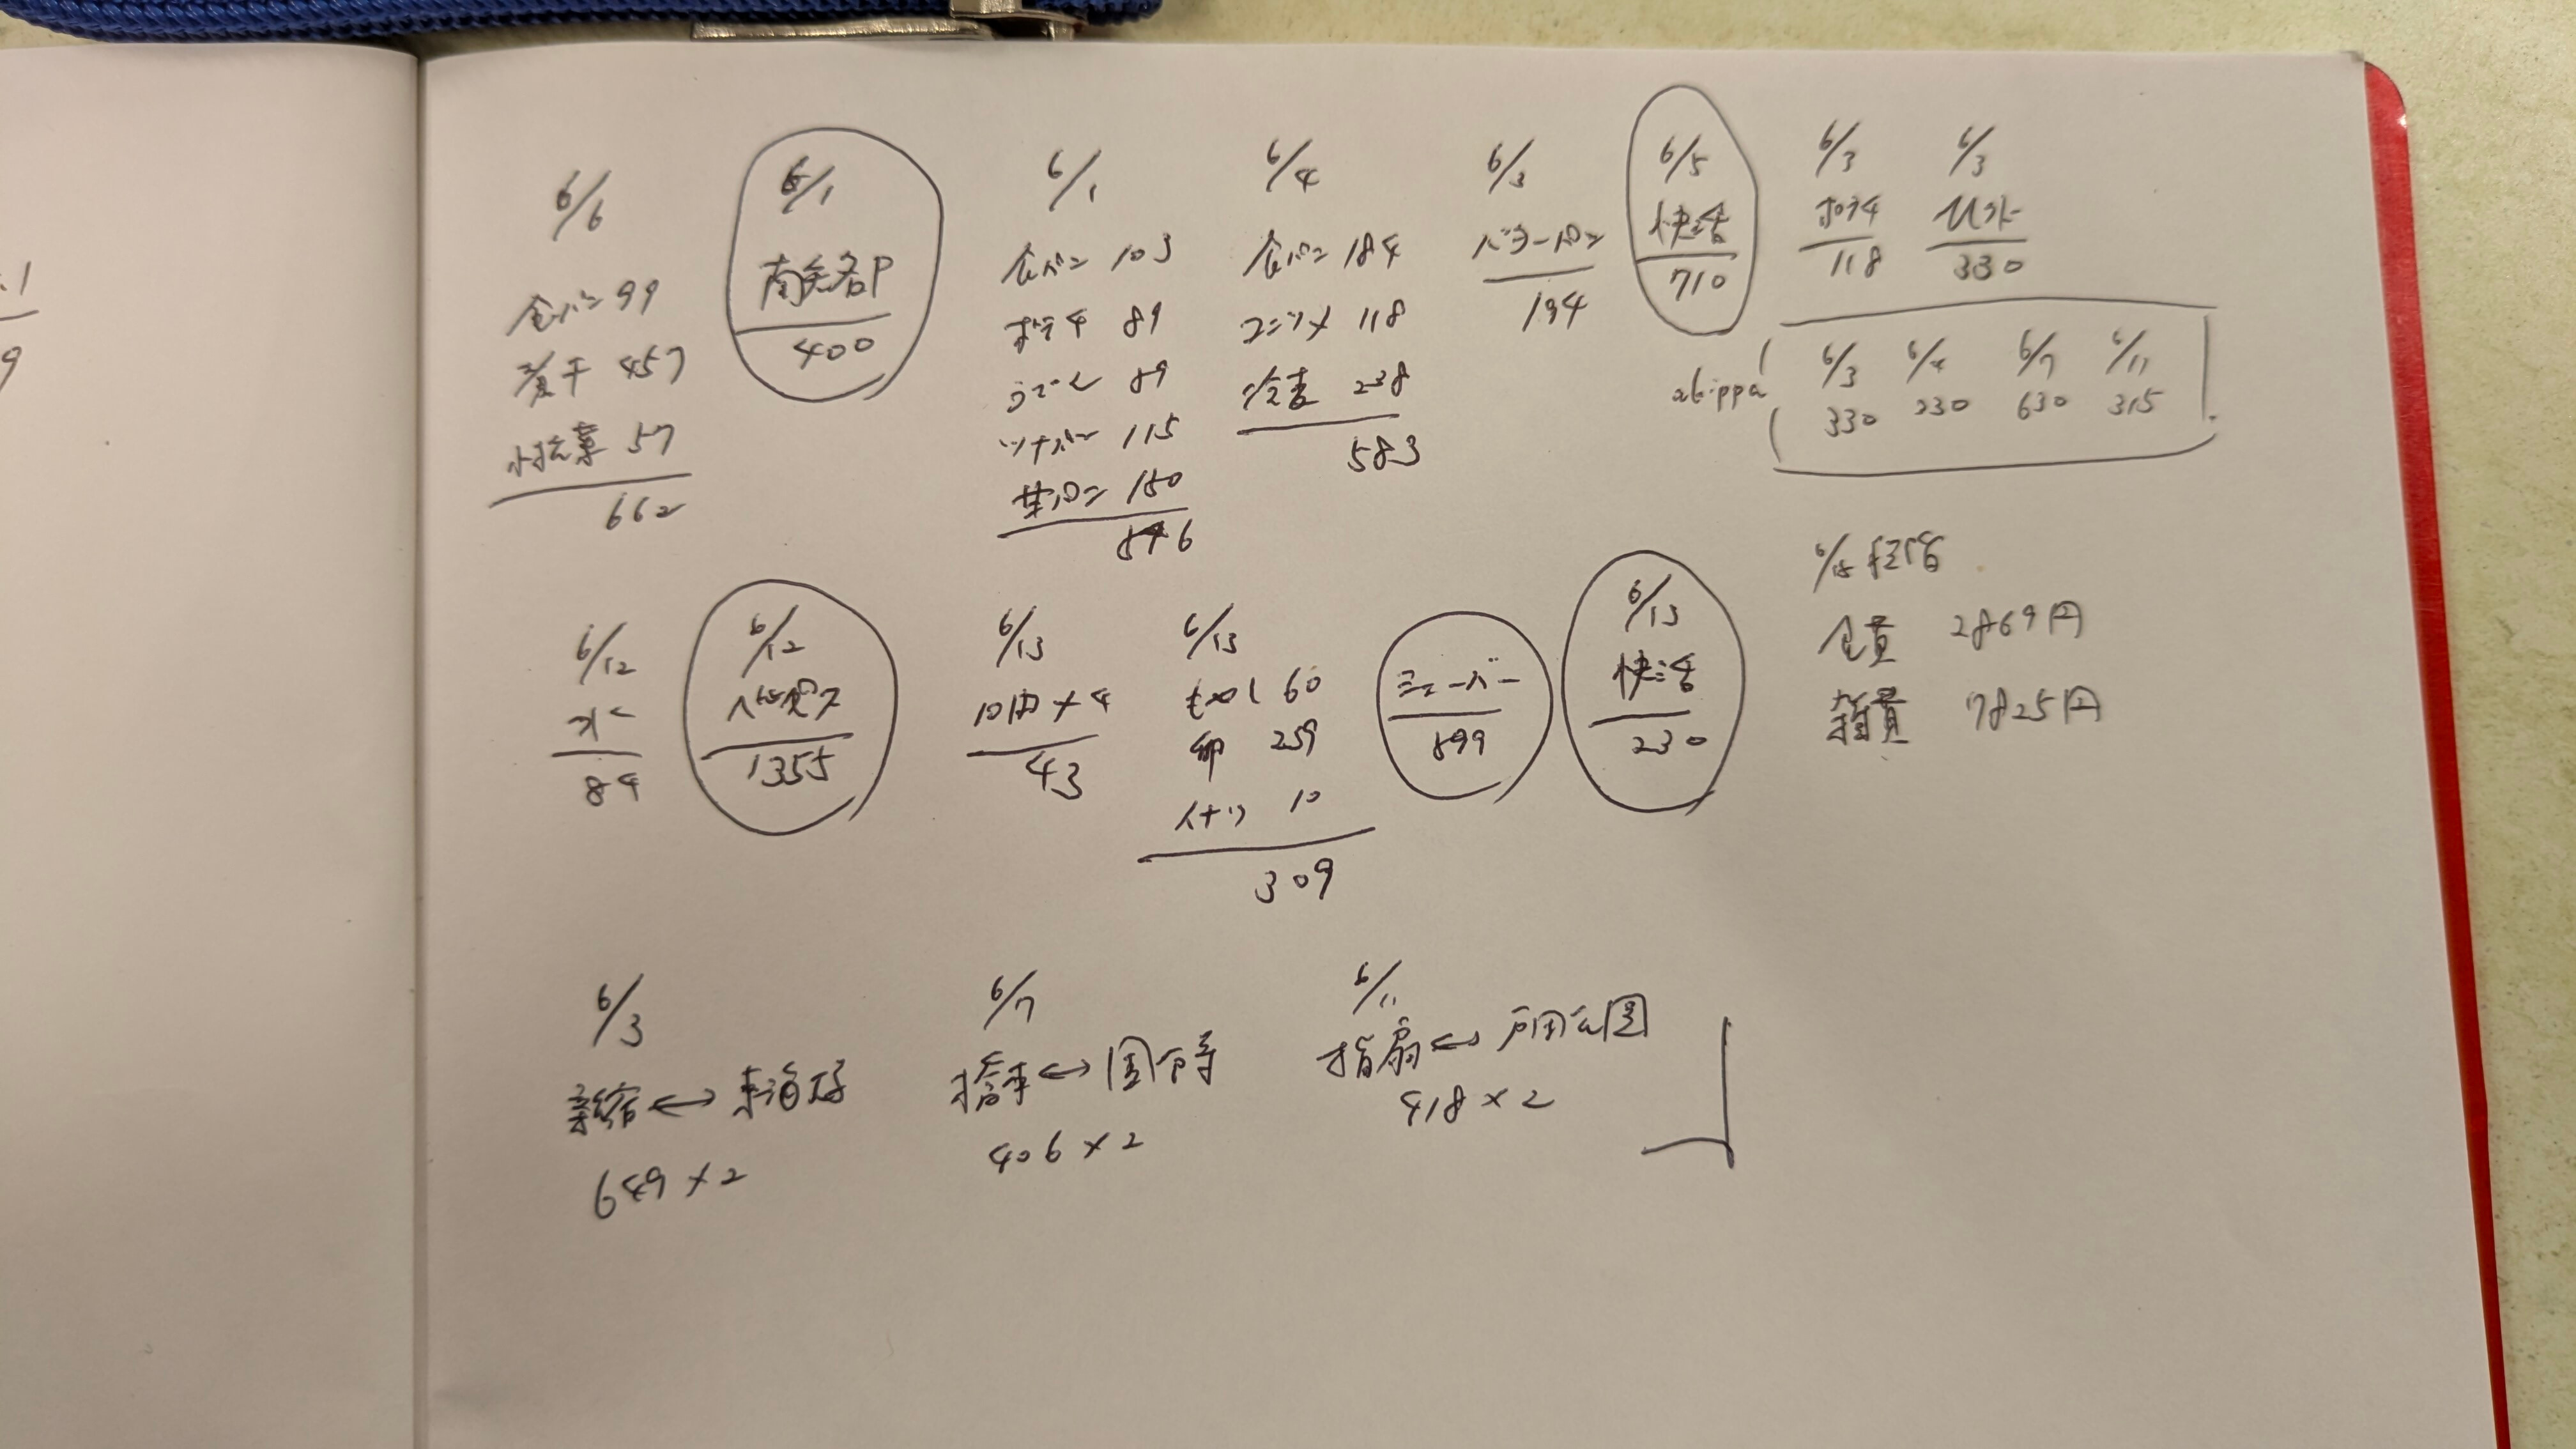 .1
9
6/6
食パン 99
煮干 457
小松菜 57
662
6/1
400
6/1
食パン 103
ポテチ 89
うどん 89
ツナパン 115
150
846
6/4
食パン 184
コンソメ 118
冷麦 238
583
6/3
バターパン
194
6/5
快活
710
6/3
ポテチ
118
6/3
330
akippa
6/3 6/4 6/7 6/11
330 230 630 315
6/15 締め
食費 2869円
雑費 7825円
6/12
水
84
6/12
1355
6/13
10円×4
43
6/13
もやし 60
卵 239
10
309
シェーバー
899
6/13
快活
230
6/3
新宿↔東海大
649×2
6/7
橋本↔国分寺
406×2
6/11
指扇↔戸田公園
418×2